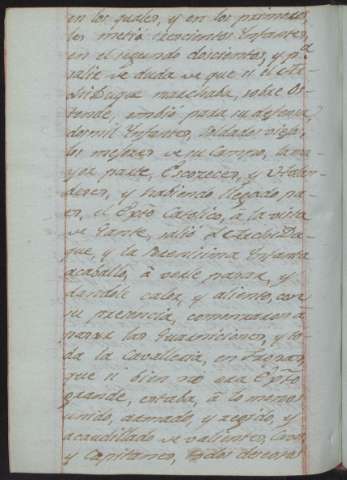 en los quales, y en los primeros
les metió trescientos Infantes,
en el segundo doscientos, y pa
salir de duda de que si el
Duque marchaba, sobre Os-
tende, embió para su defensa
dos mil Infantes, Soldados viejos,
los mejores de su Campo, la ma-
yor parte, Escoceses, y
y habiendo llegado pu-
es, el Catolico, a la vista
de Gante, salió el
que, y la Serenisima Infanta
acaballo, à verle pasar, y
dandole calor, y aliento, con
su presencia, comenzaron a
pasar las Guarniciones, y to-
da la Cavalleria, en Tropas,
que si bien no era
grande, estaba, à lo menos
unido, armado, y regido, y
acaudillado de valientes,
y Capitanes, todos deseosos